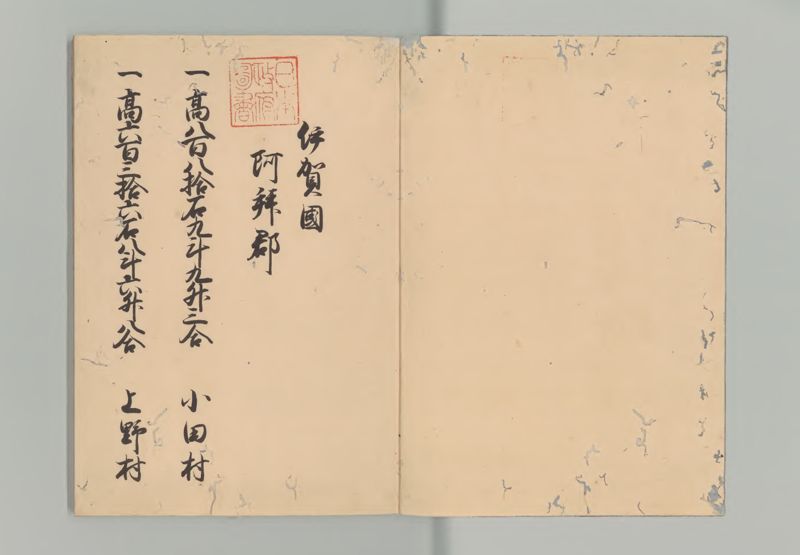 伊賀國
阿拜郡
一高八百八拾石九斗九升三合 小田村
一高六百三拾六石八斗六升八合 上野村
日本政府圖書